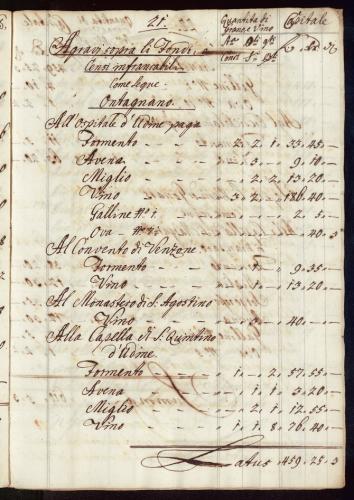 21.
Quantità di
Grane e Vino
Capitale
Agravi sopra li Fondi, e
Censi infrancabili
Come segue
Ontagnano.
All'Ospitale d'Udine paga
Formento - - - 2 " 2 " 1 " 33 " 45 "
Avena - - - 3 " - " 9 " 10 "
Miglio - - - 2 " 2 " 13 " 20 "
Vino - - - 3 " 2 " - " 186 " 40 "
Galline N°: 1: - - - 2 " 5 "
Ova - - - 40 " 3
Al Convento di Venzone
Formento - - - 1 " - " 9 " 35 "
Vino - - - 1 " - " 13 " 20 "
Al Monastero di S. Agostino
Vino - - - 3 " - " 40 " - "
Alla Capella di S. Quintino
d'Udine.
Formento - - - 1 " - " 2 " 57 " 55 "
Avena - - - 1 " 1 " 3 " 20 "
Miglio - - - 2 " 1 " 12 " 55 "
Vino - - - 1 " 1 " 8 " 76 " 40 "
Latus " 459 " 25 " 3